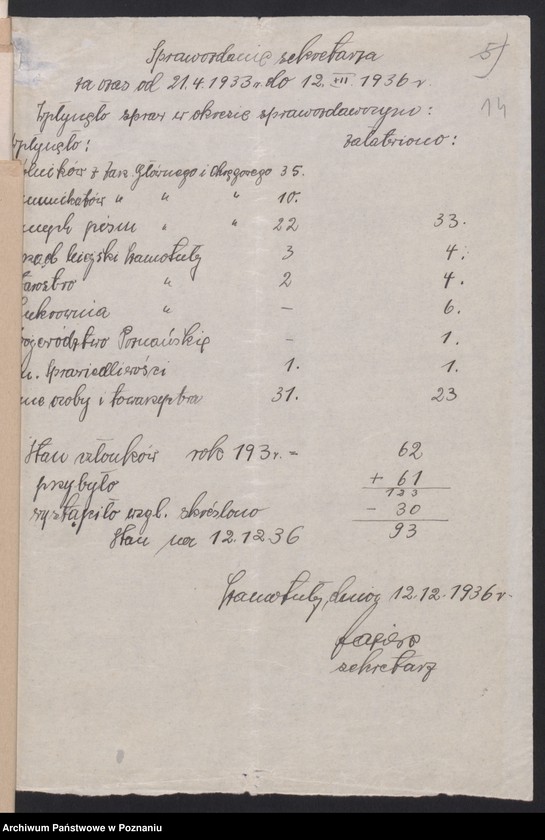 Sprawozdanie sekretarza
za czas od 21.4.1933 r. do 12. XII 1936 r.
5)
14
Wpłynęło spraw w okresie sprawozdawczym:
płynęło: załatwiono:
ólników z Zarz. Głównego i Okręgowego 35.
munikatów " " " 10.
nnych pism " " 22 33.
rząd Miejski Szamotuły 3 4.
tarostwo " 2 4.
ukrownia " – 6.
ojewództwo Poznańskie – 1.
n. Sprawiedliwości 1. 1.
nne osoby i towarzystwa 31. 23
Stan członków rok 193 r. = 62
przybyło + 61
123
wystąpiło wzgl. skreślono – 30
Stan na 12.12.36 93
Szamotuły, dnia 12.12.1936 r.
sekretarz
Archiwum Państwowe w Poznaniu